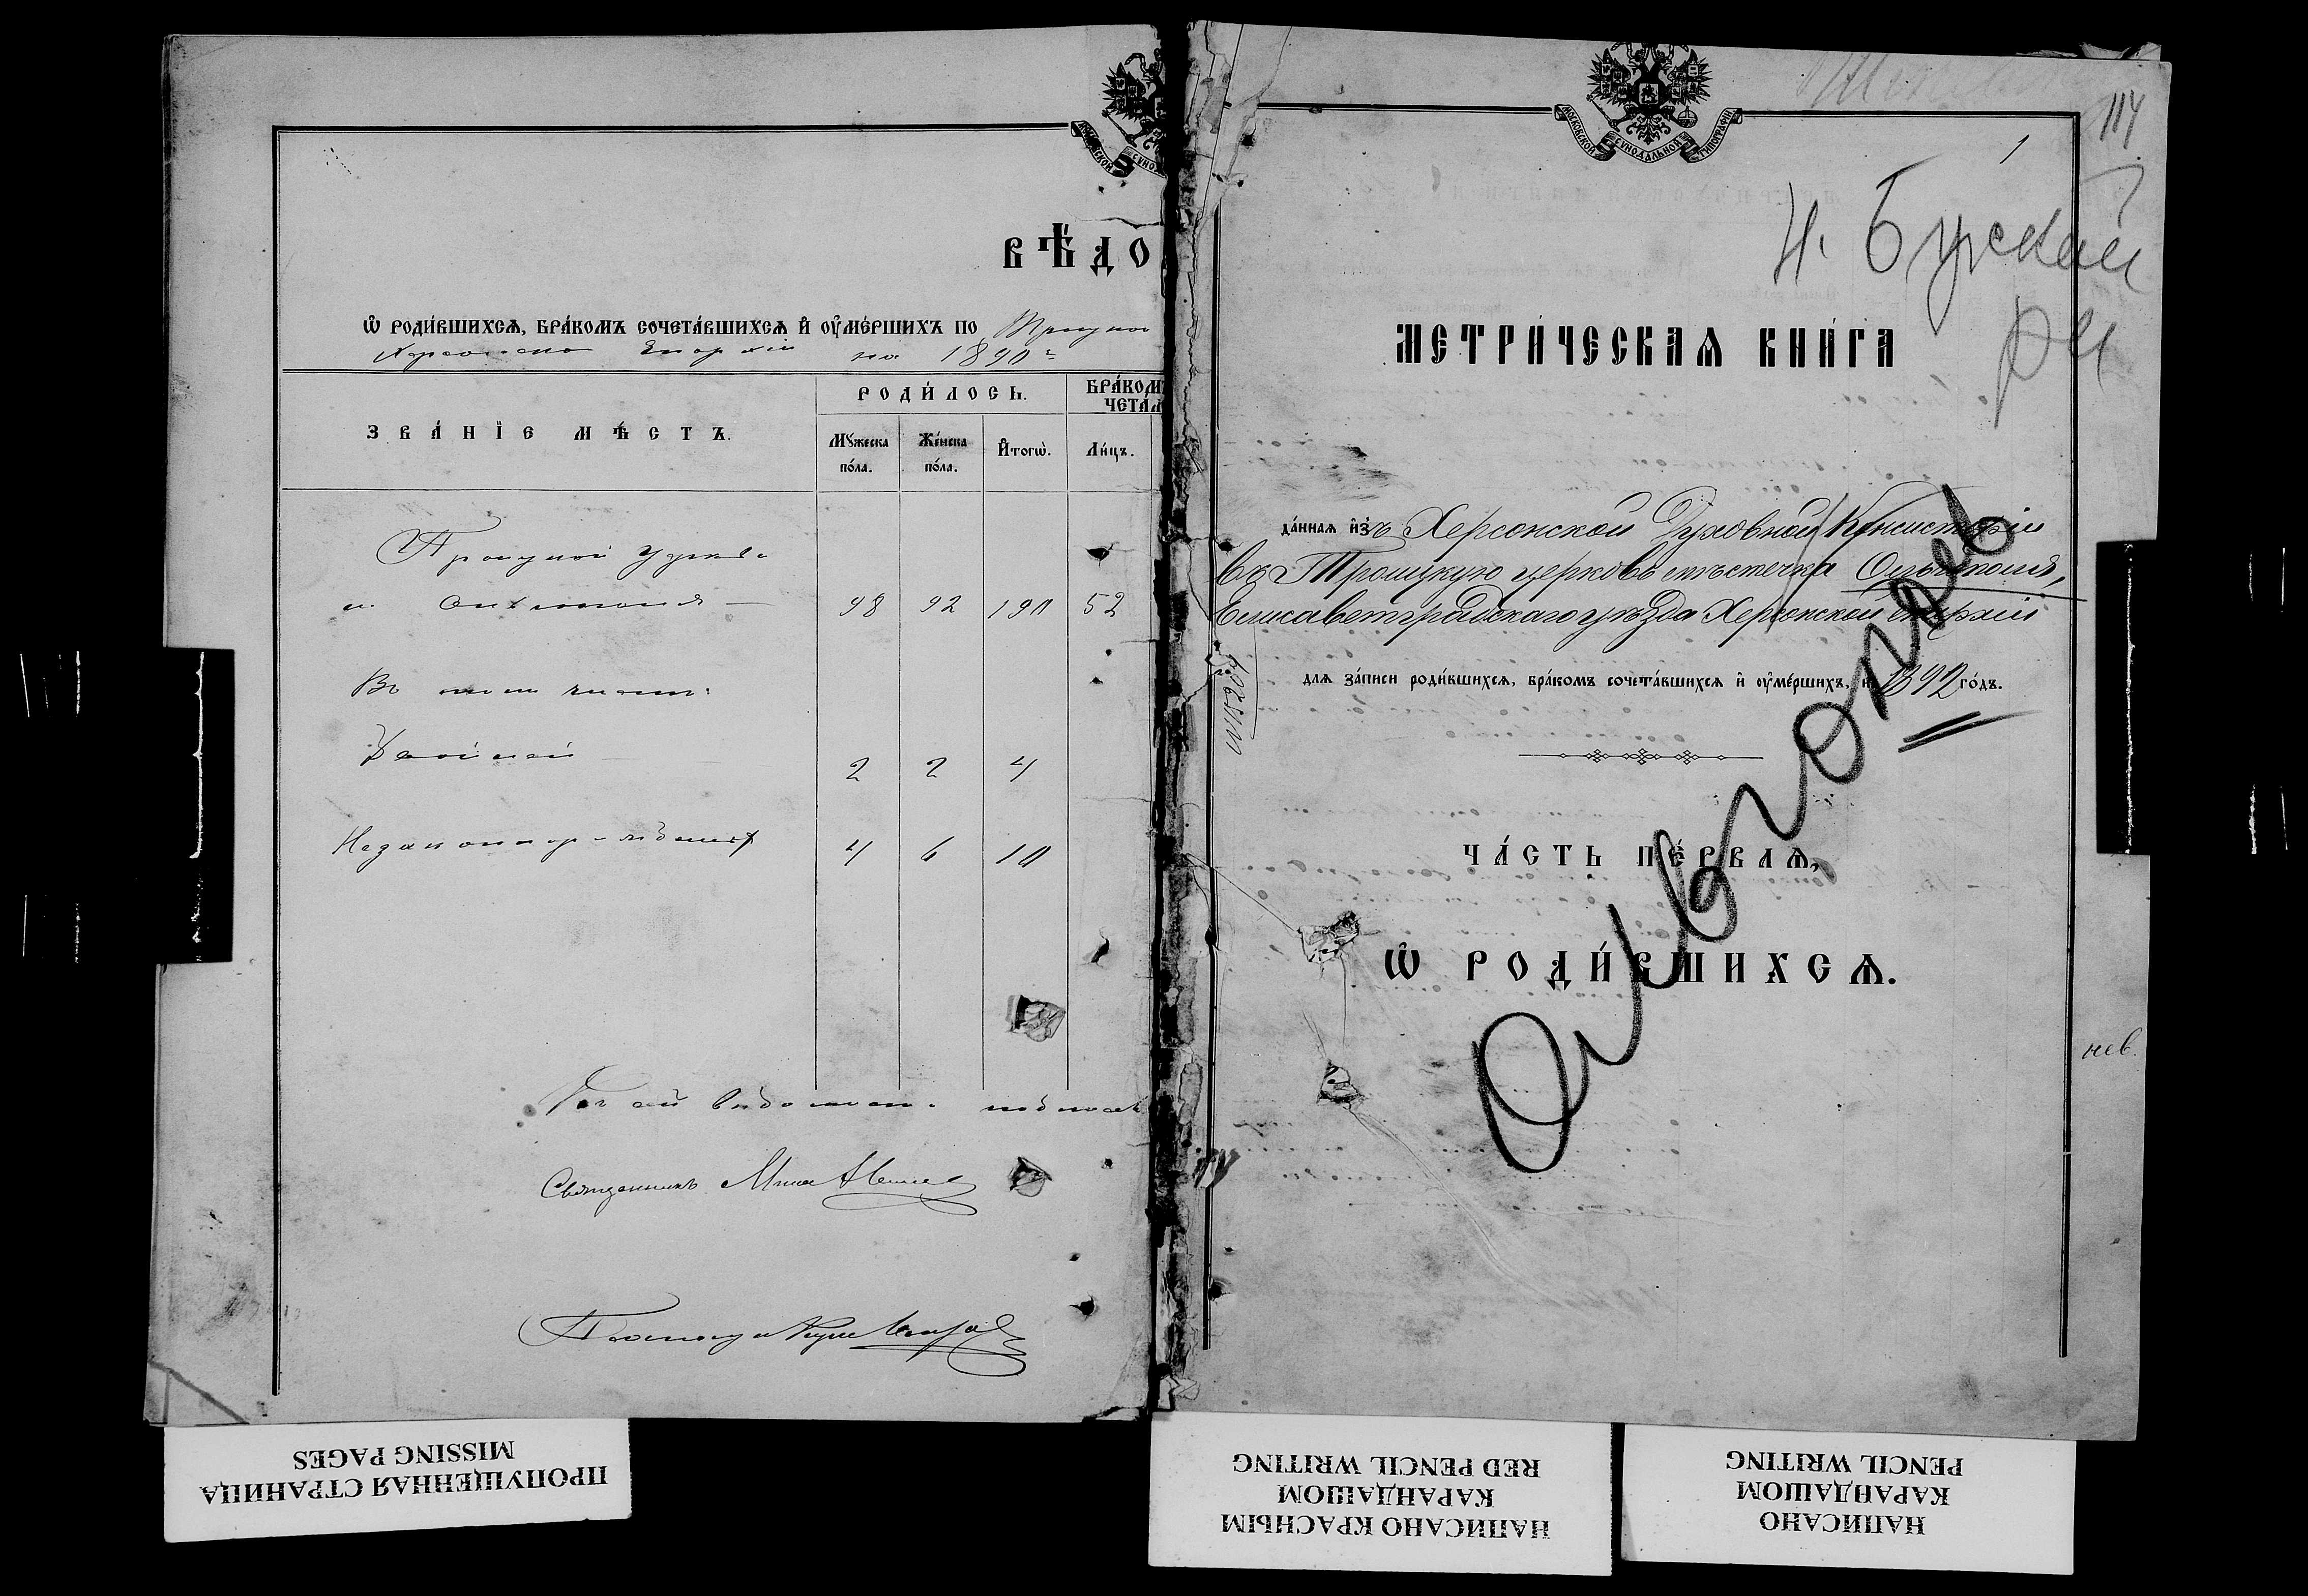 ВѢДО
Ѡ РОДИ́ВШИХСѦ, БРА́КОМЪ СОЧЕТА́ВШИХСѦ И҆ ОУ҆МЕ́РШИХЪ ПО Троицкой
Херсонской Епархіи на 1890 г.
ЗВА́НІЕ МѢ́СТЪ.
РОДИ́ЛОСЬ.
БРА́КОМЪ
ЧЕТА́Л
Му́жеска по́ла.
Же́нска по́ла.
И҆тогѡ̀.
Ли́цъ.
Троицкой церкви
м. 98 92 190 52
Въ томъ числѣ:
Двойней 2 2 4
Незаконнорожденныхъ 4 6 10
Къ сей вѣдомости подписал
Священникъ
МОСКОВСКОЙ СѴНОДАЛЬНОЙ ТИПОГРАФІИ
114
1
Н. Бугский
р-н
МЕТРИ́ЧЕСКАѦ КНИ́ГА
да́ннаѧ и҆зъ Херсонской Духовной Консисторіи
въ Троицкую церковь мѣстечка Ольгополя,
Елисаветградскаго уѣзда Херсонской епархіи
длѧ за́писи роди́вшихсѧ, бра́комъ сочета́вшихсѧ и҆ оу҆ме́ршихъ, на 1892 го́дъ.
ЧА́СТЬ ПЕ́РВАѦ,
Ѡ РОДИ́ВШИХСѦ.
нев.
ПРОПУЩЕННАЯ СТРАНИЦА
MISSING PAGES
НАПИСАНО КРАСНЫМ
КАРАНДАШОМ
RED PENCIL WRITING
НАПИСАНО
КАРАНДАШОМ
PENCIL WRITING